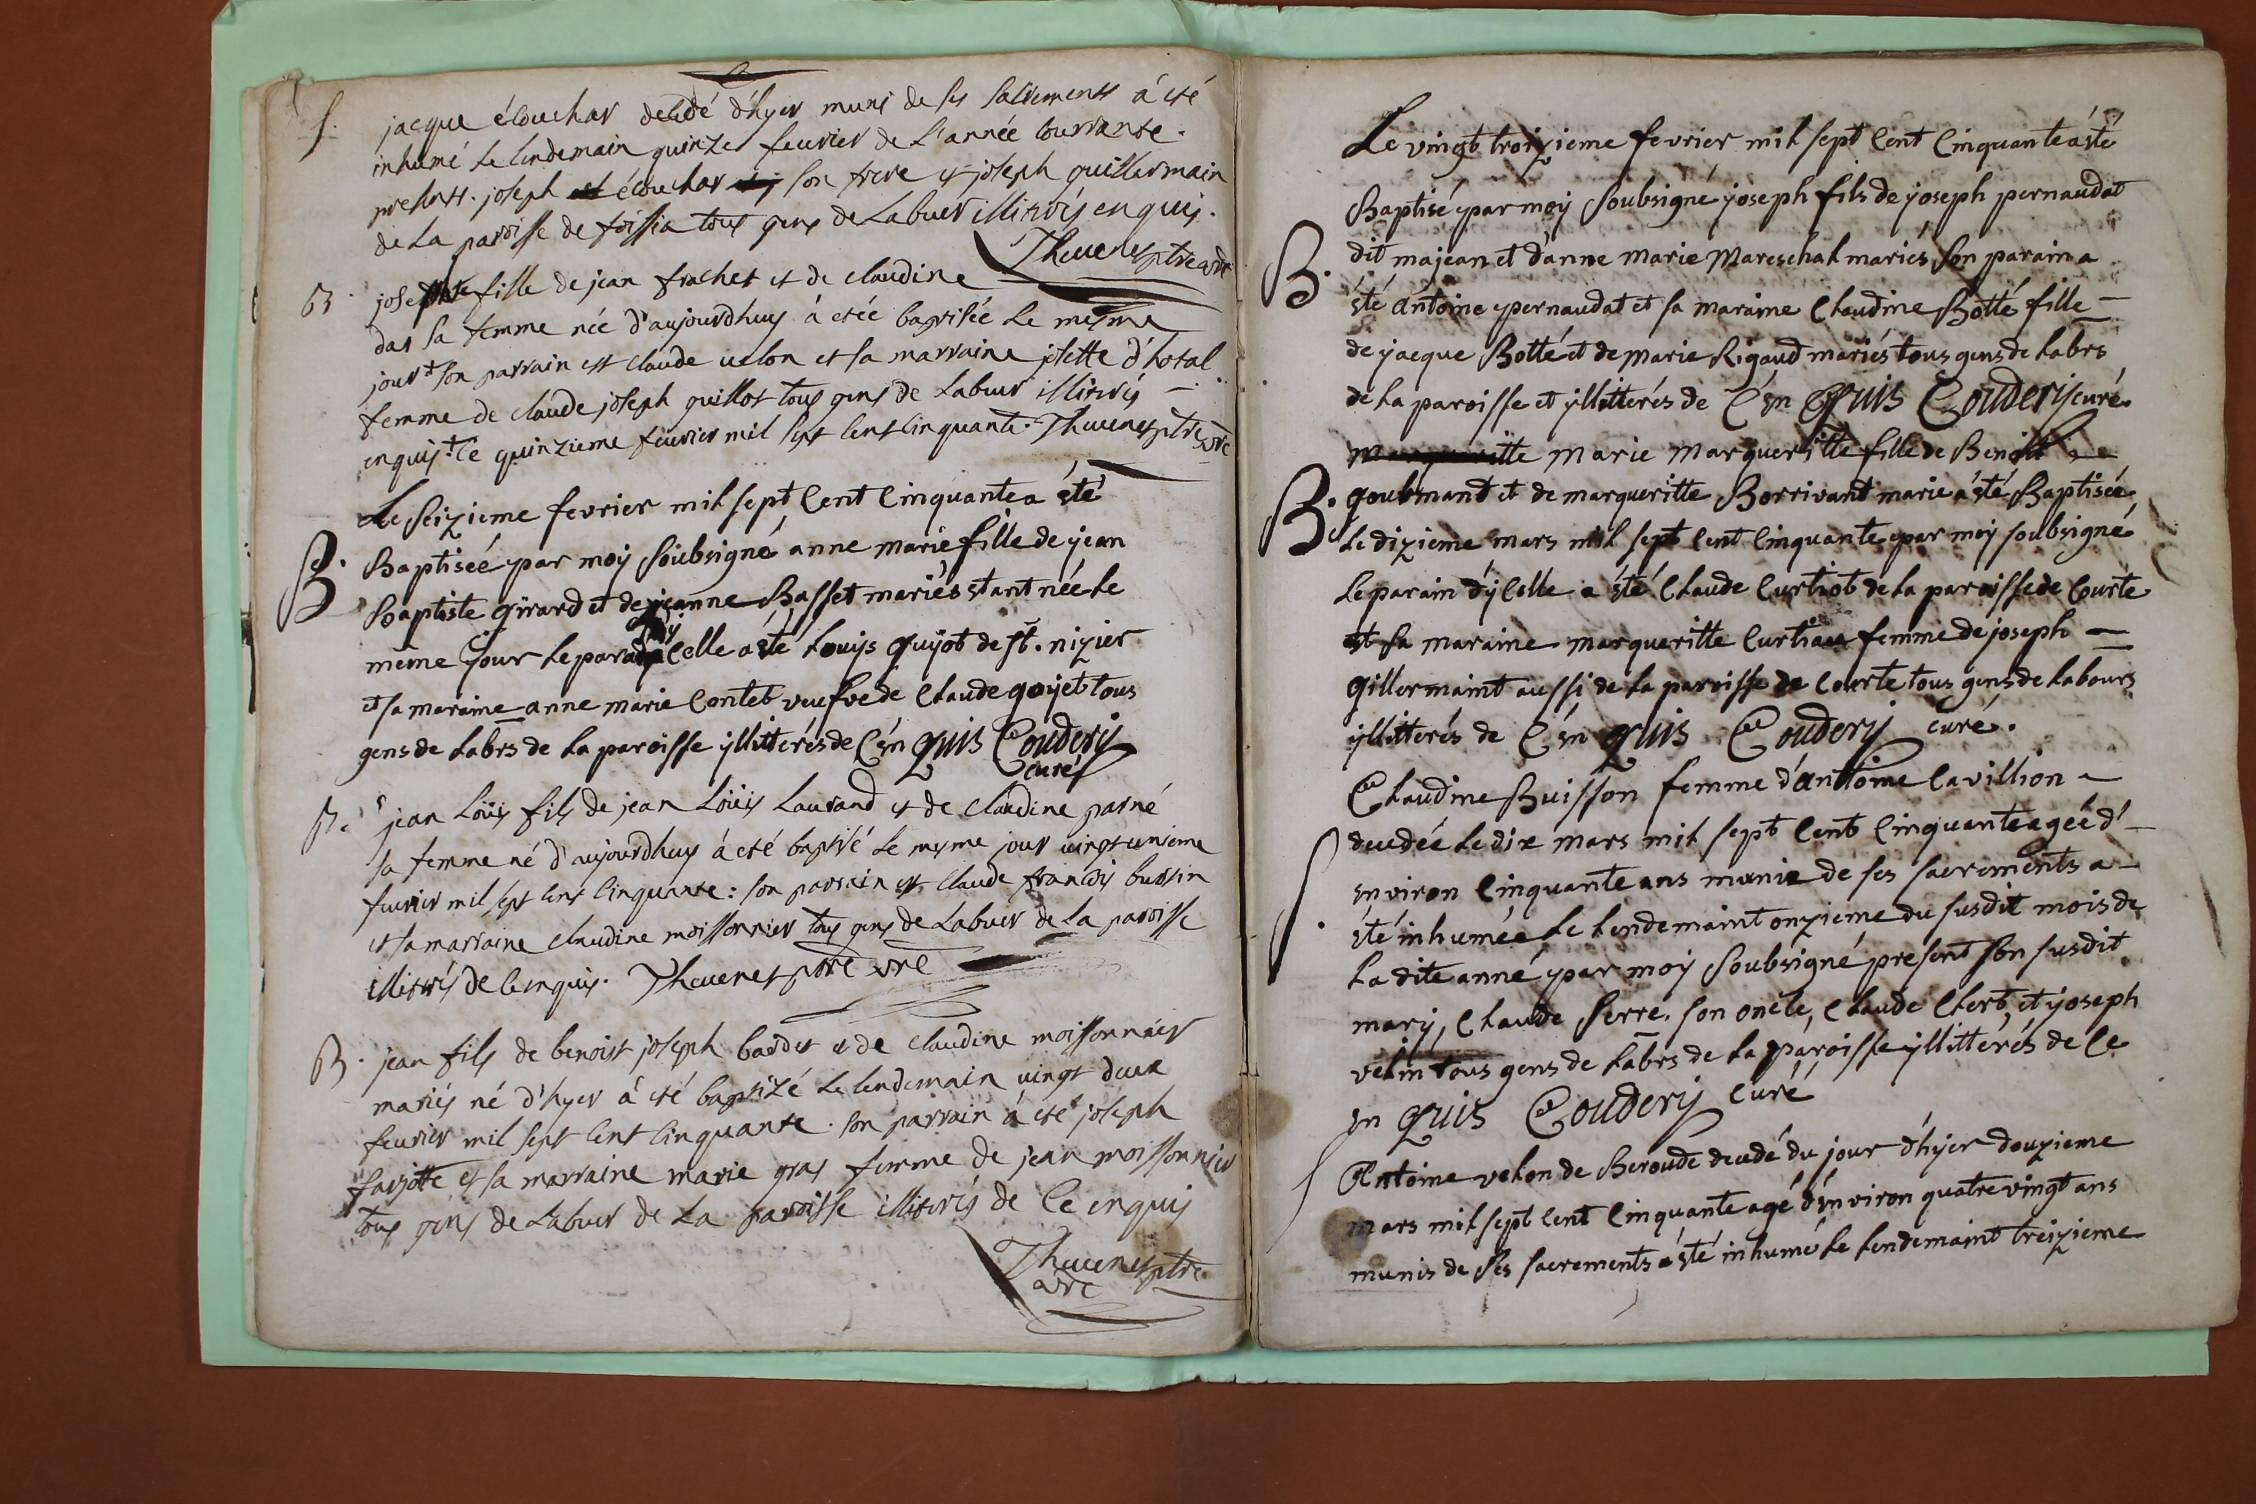 S. jacque écouchar décédé d'hyer muni de ses sacrements á été
inhumé le lendemain quinze feurier de l'année courrante.
presents. joseph écouchar son frere et joseph guillermain
de la paroisse de foissia tous gens de Labuer illiterés enquis.
Theuenet ptre vre
B. josephte fille de jean frachet et de claudine
das sa femme née d'aujourdhuy à etée baptisée le mesme
jour son parrain est claude uelon et sa marraine josette d'hotal
femme de claude joseph guillot tous gens de Labuer illiterés
enquis. Ce quinzieme feurier mil sept cent cinquante. Theuenet ptre vre
Le Seizieme fevrier mil sept Cent Cinquante a été
B. Baptiseé par moy Soubsigné anne marie fille de jean
Baptiste girard et de jeanne Basset mariés etant née le
même jour le parain d'ycelle a été Louys guyot de st. nizier
et sa maraine anne marie Contet veufve de Claude goyet tous
gens de Labrs de la paroisse yllitterés de C'en quis Coudery
curé
B. jean Loüis fils de jean Loüis Laurand et de claudine parné
sa femme né d'aujourdhuy á eté baptisé le mesme jour uingt unieme
feurier mil sept cent cinquante: son parrain est claude françois bussin
et sa marraine claudine moissonnier tous gens de Labuer de la paroisse
illiterés de ce enquis. Theuenet ptre vre
B. jean fils de benoist joseph bardet et de claudine moissonnier
mariés né d'hyer á eté baptizé le lendemain uingt deux
feurier mil sept cent cinquante. son parrain à eté joseph
farjotte et sa marraine marie gras femme de jean moissonnier
tous gens de Labuer de la paroisse illiterés de Ce enquis
Theuenet ptre
vre
Le vingt troizieme fevrier mil sept Cent Cinquante a été
Baptisé par moy Soubsigné joseph fils de joseph pernaudat
B. dit majean et d'anne marie Mareschal mariés, Son parain a
été antoine pernaudat et sa maraine Claudine Botté fille
de jacque Botté et de marie Rigaud mariés tous gens de Labrs
de la paroisse et yllitterés de C'en Quis Coudery curé
Marie Margueritte fille de Benoît
B. goubmand et de margueritte Borrivant marie a été Baptisée
le dizieme mars mil sept Cent Cinquante par moy soubsigné
Le parain d'ycelle a été Claude Curtiot de la paroisse de Courte
et sa maraine margueritte Curtiau femme de joseph
gillermaint aussi de la paroisse de Courte tous gens de Labours
yllitterés de C'en quis Coudery curé.
Claudine Buisson femme d'antoine Cavillion
decedée le dix mars mil sept Cent Cinquante agée d'
S. environ Cinquante ans munie de ses sacrements a
été inhumée le lendemaint onzieme du susdit mois de
La dite anné par moy Soubsigné present son susdit
mary, Claude Serre. son oncle, Claude Clert, et joseph
velin tous gens de Labrs de la paroisse yllitterés de Ce
en quis Coudery curé
S Antoine velon de Beroude decedé du jour d'hyer douzieme
mars mil sept Cent Cinquante agé d'environ quatre vingt ans
munis de Ses sacrements a été inhumé le lendemaint treizieme